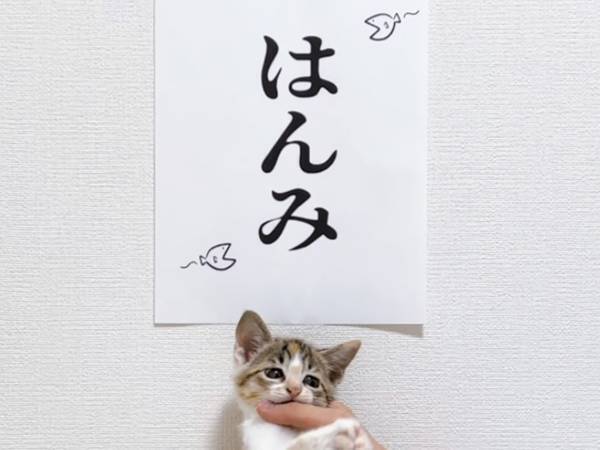 はんみ